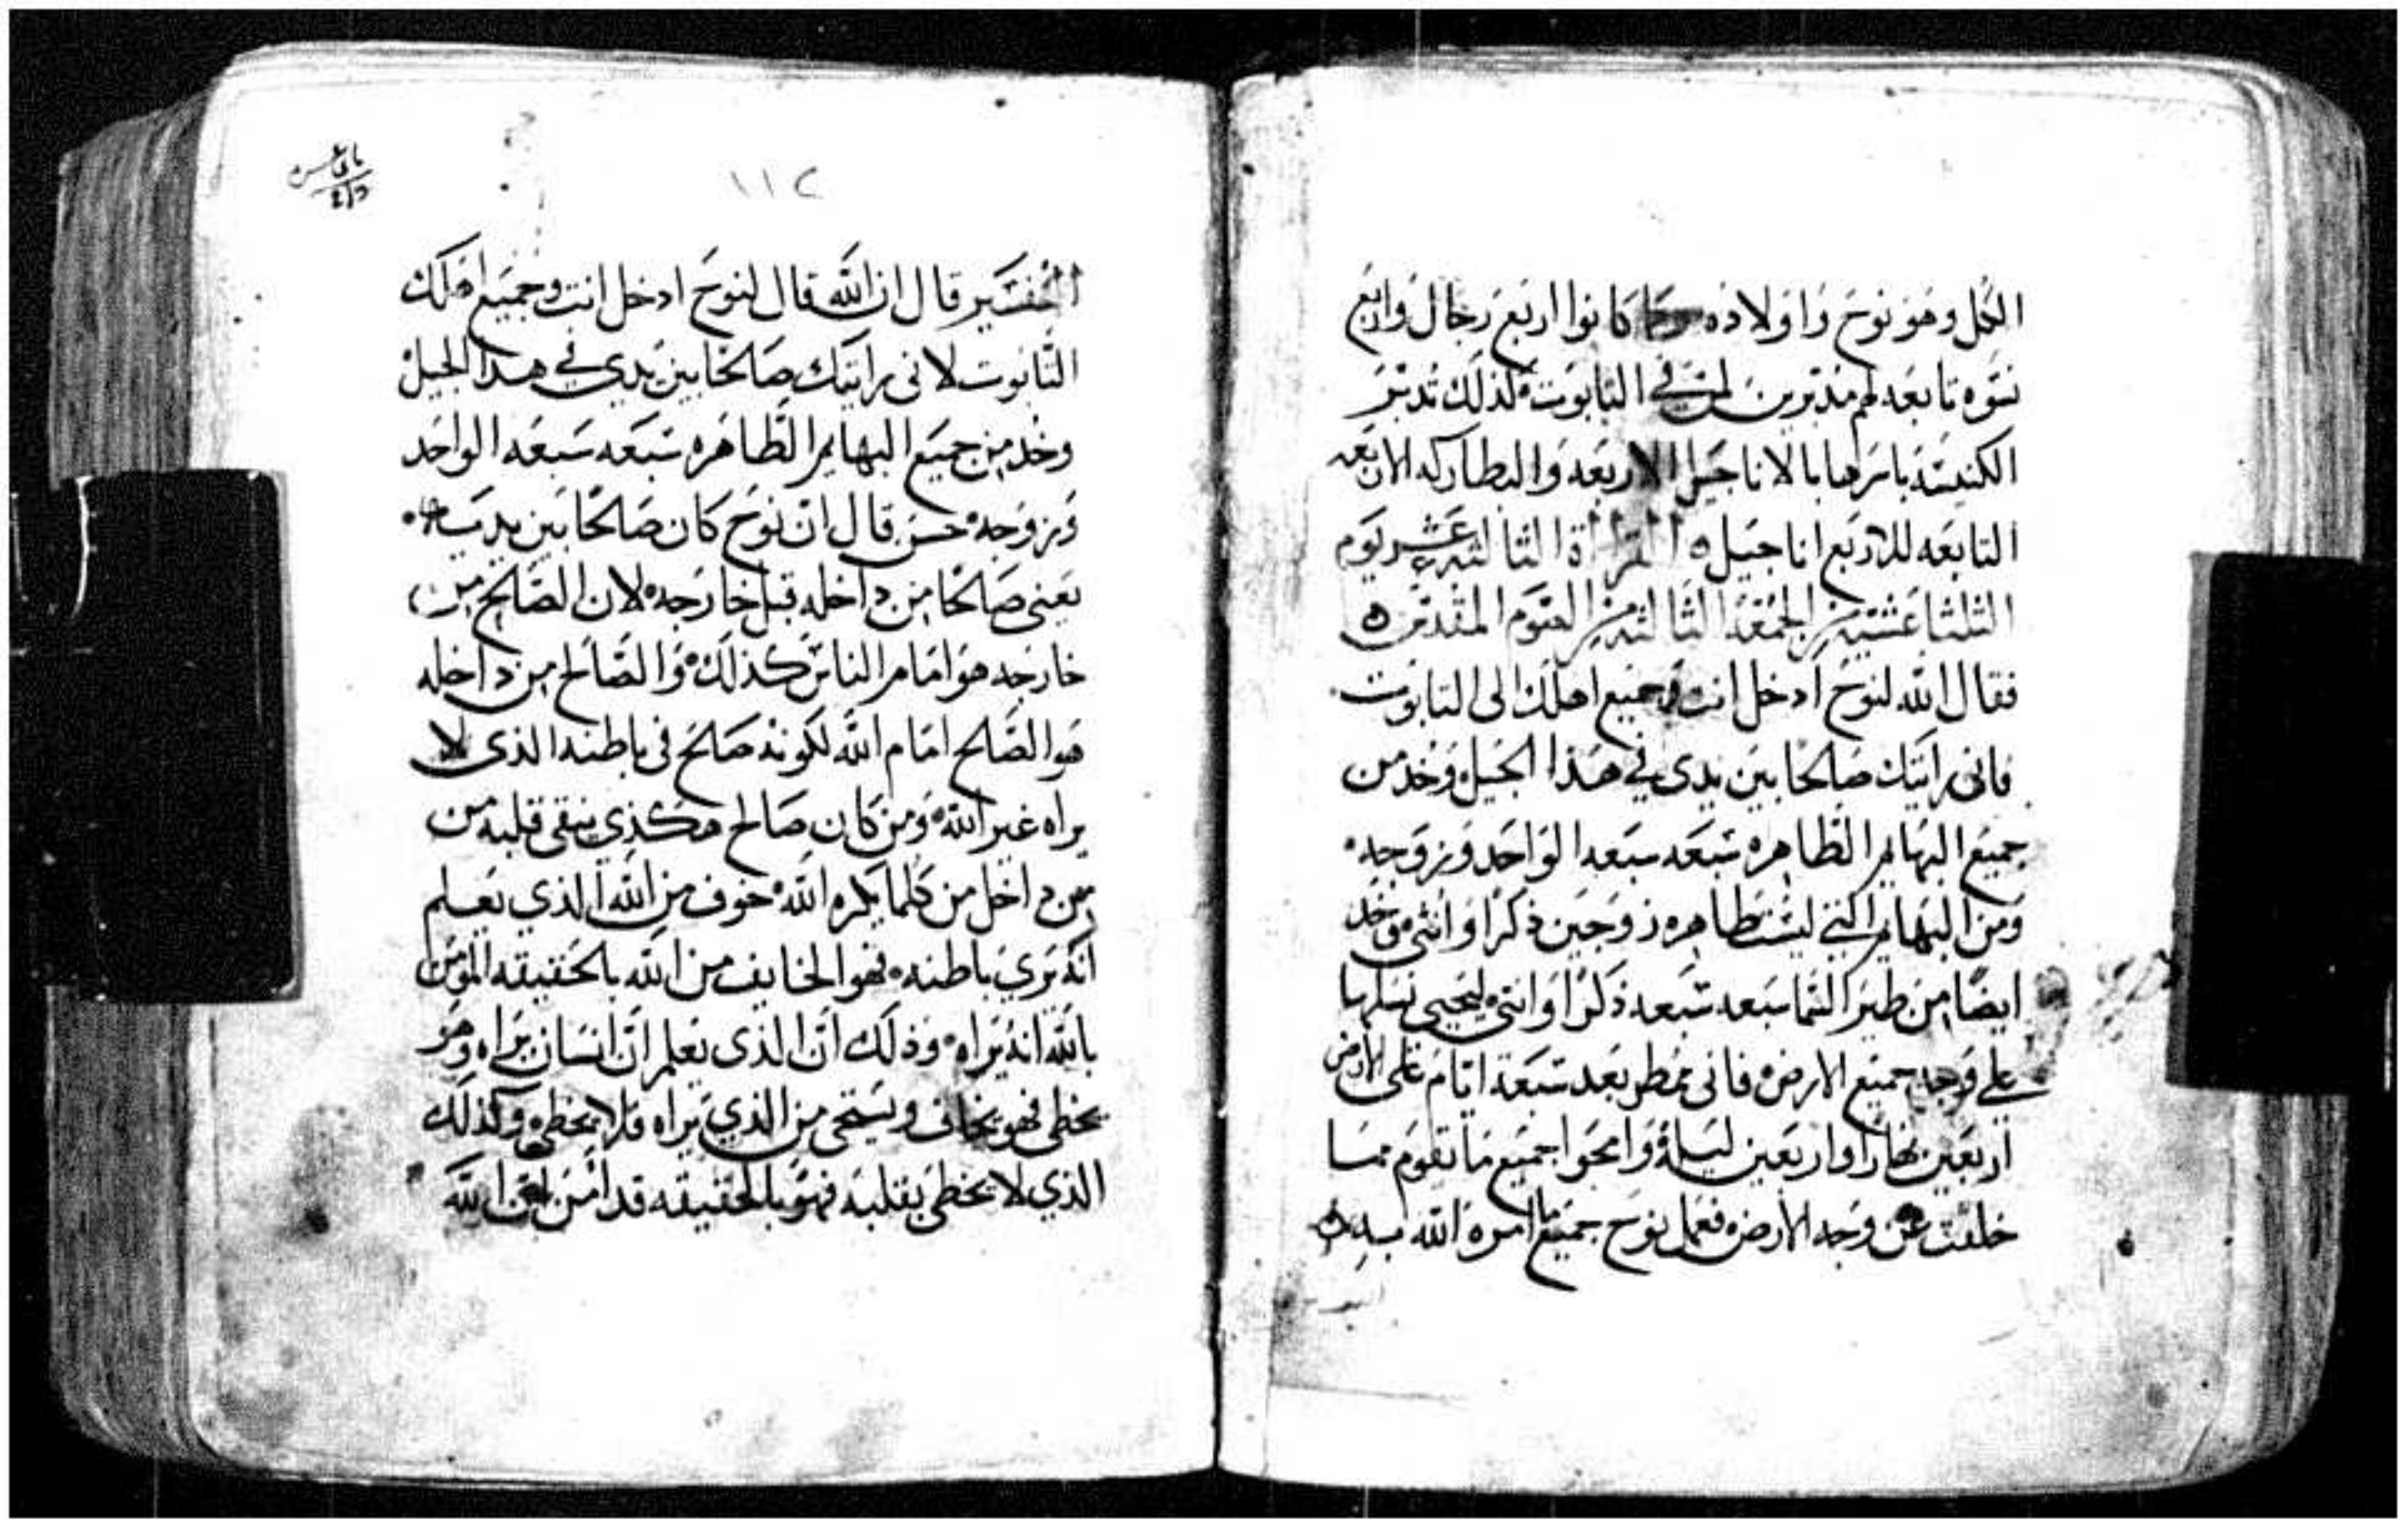 الكل وهو نوح واولاده كانوا اربع رجال واربع
نسوه تابعه لهم مدبرين لمن في التابوت كذلك تدبر
الكنيسه باسرها بالاناجيل الاربعه والبطاركه الاربعه
التابعه للاربع اناجيل ه القراة الثالثه عشر يوم
الثلثا عشية من الجمعه الثالثه من الصوم المقدس ه
فقال الله لنوح ادخل انت وجميع اهلك الى التابوت
فانى رايتك صالحا بين يدى في هذا الجيل وخد من
جميع البهايم الطاهره سبعه سبعه الواحد وزوجه
ومن البهايم التي ليست طاهره زوجين ذكرا وانثى وخد
ايضا من طير السما سبعه سبعه ذكرا وانثى ليحيى نسلها
على وجه جميع الارض فانى ممطر بعد سبعة ايام على الارض
اربعين نهارا واربعين ليلة وامحوا جميع ما تقوم مما
خلقت عن وجه الارض فعمل نوح جميع ما امره الله به
١١٢
التفسير قال ان الله قال لنوح ادخل انت وجميع اهلك
التابوت لانى رايتك صالحا بين يدي في هدا الجيل
وخد من جميع البهايم الطاهره سبعه سبعه الواحد
وزوجه حسن قال ان نوح كان صالحا بين يديه
يعنى صالحا من داخله قبل خارجه لان الصالح من
خارجه هو امام الناس كذلك والصالح من داخله
هو الصالح امام الله لكونه صالح فى باطنه الذى لا
يراه غير الله ومن كان صالح هكذي ينقى قلبه من
من داخل من كلما يكره الله خوف من الله الذي يعلم
انه يري باطنه فهو الخايف من الله بالحقيقه المومن
بالله انه يراه وذلك ان الذى يعلم ان انسان يراه وهو
يخطى فهو يخاف ويستحى من الذي يراه فلا يخطى وكذلك
الذي لا يخطى بقلبه فهو بالحقيقه قد امن ان الله